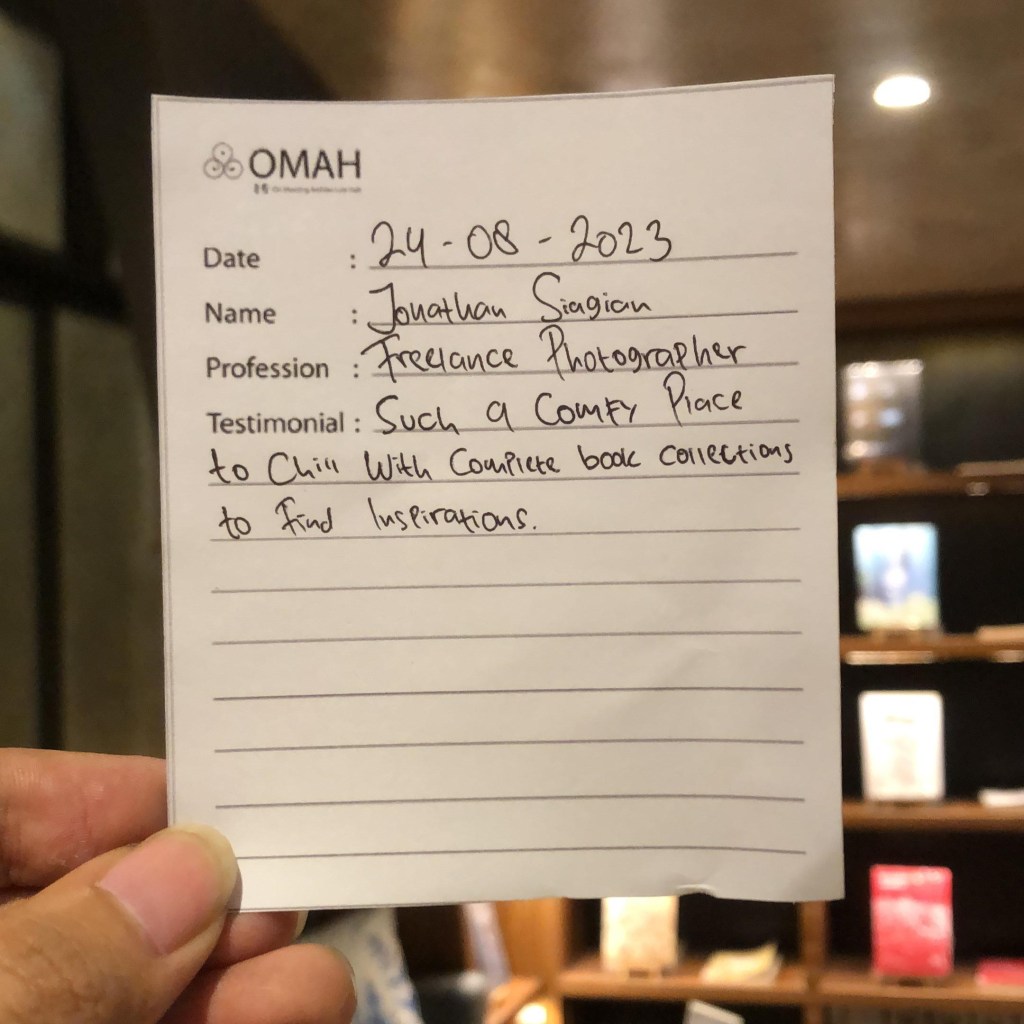 OMAH
Date : 24-08-2023
Name : Jonathan Siagian
Profession : Freelance Photographer
Testimonial : Such a Comfy Place
to Chill With Complete book collections
to Find Inspirations.